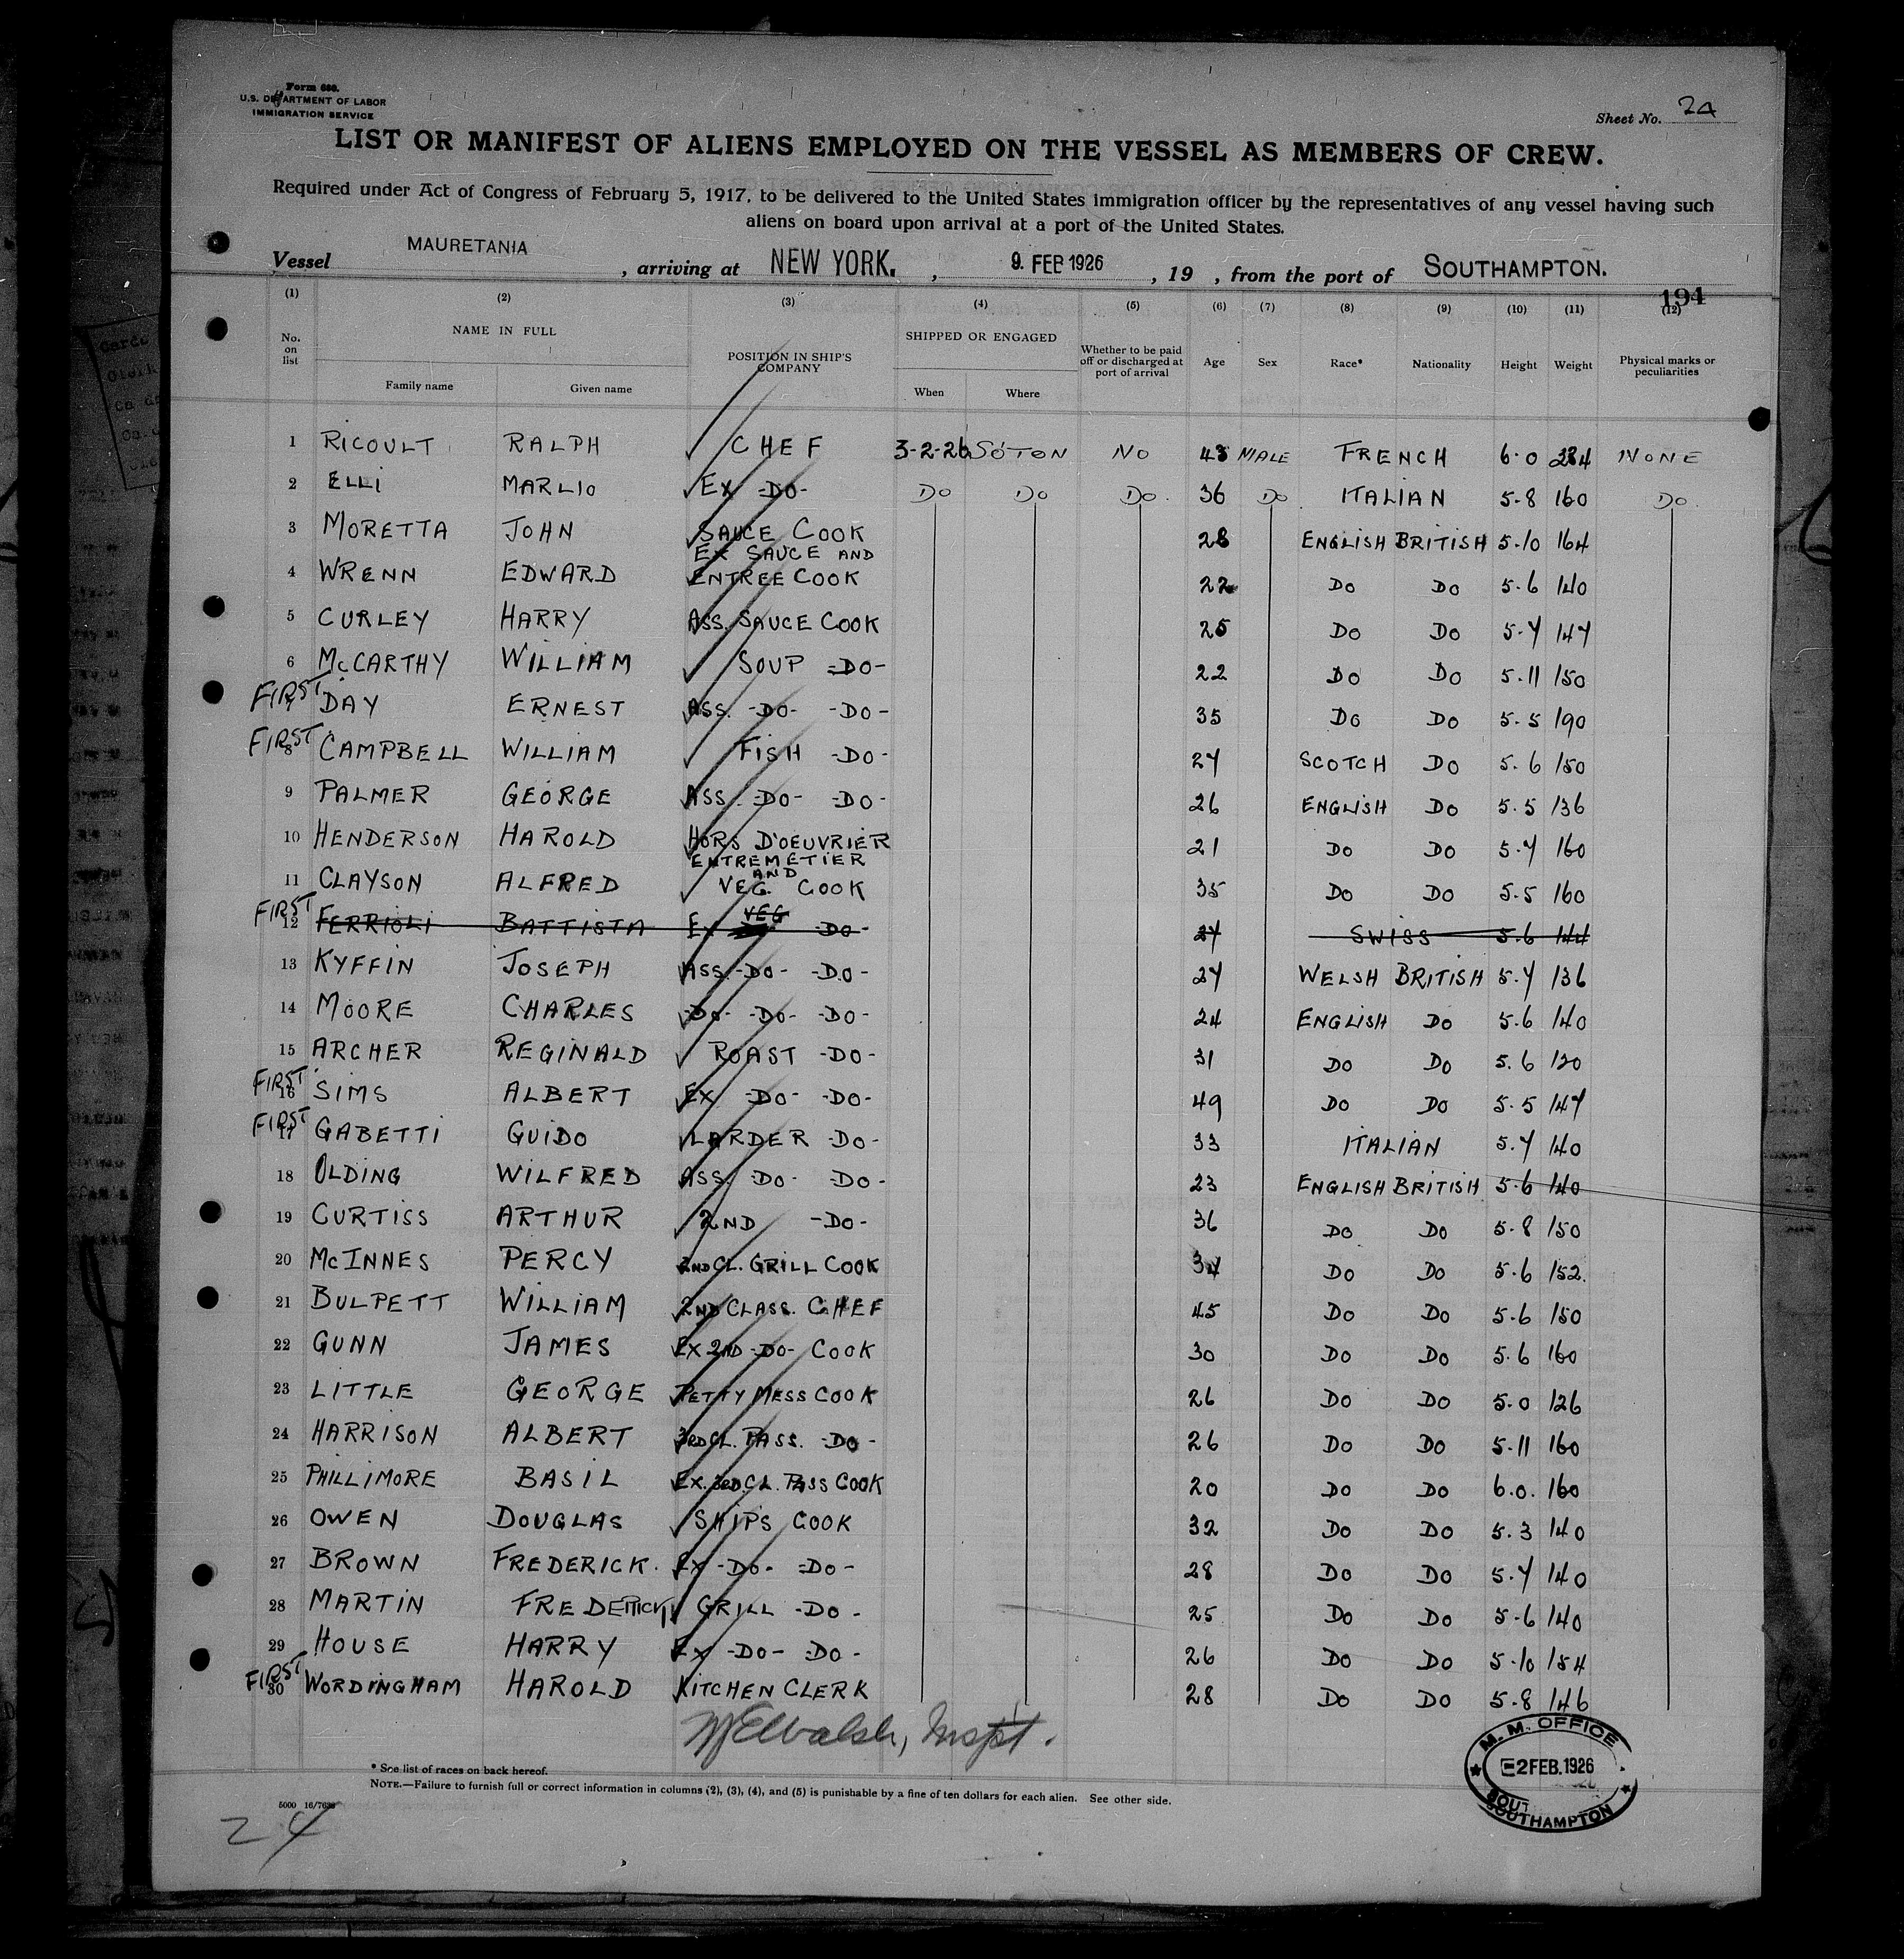 Form 686.
U.S. DEPARTMENT OF LABOR
IMMIGRATION SERVICE
Sheet No. 24
LIST OR MANIFEST OF ALIENS EMPLOYED ON THE VESSEL AS MEMBERS OF CREW.
Required under Act of Congress of February 5, 1917, to be delivered to the United States immigration officer by the representatives of any vessel having such
aliens on board upon arrival at a port of the United States.
Vessel MAURETANIA , arriving at NEW YORK. , 9. FEB 1926 , 19 , from the port of SOUTHAMPTON.
194
(1) (2) (3) (4) (5) (6) (7) (8) (9) (10) (11) (12)
No. on list NAME IN FULL Family name Given name POSITION IN SHIP'S COMPANY SHIPPED OR ENGAGED When Where Whether to be paid off or discharged at port of arrival Age Sex Race* Nationality Height Weight Physical marks or peculiarities
1 RICOULT RALPH CHEF 3-2-26 SOTON NO 43 MALE FRENCH 6.0 NONE
2 ELLI MARLIO EX -DO- DO DO DO. 36 DO ITALIAN 5-8 160 DO
3 MORETTA JOHN SAUCE COOK 28 ENGLISH BRITISH 5-10 164
4 WRENN EDWARD EX SAUCE AND ENTREE COOK 22 DO DO 5.6 140
5 CURLEY HARRY ASS. SAUCE COOK 25 DO DO 5.7 147
6 McCARTHY WILLIAM SOUP -DO- 22 DO DO 5.11 150
FIRST 7 DAY ERNEST ASS. -DO- -DO- 35 DO DO 5.5 190
FIRST 8 CAMPBELL WILLIAM FISH -DO- 27 SCOTCH DO 5.6 150
9 PALMER GEORGE ASS. -DO- -DO- 26 ENGLISH DO 5.5 136
10 HENDERSON HAROLD HORS D'OEUVRIER 21 DO DO 5.7 160
11 CLAYSON ALFRED ENTREMETIER AND VEG. COOK 35 DO DO 5.5 160
FIRST 12 FERRIOLI BATTISTA EX VEG -DO- 27 SWISS 5.6 144
13 KYFFIN JOSEPH ASS. -DO- -DO- 27 WELSH BRITISH 5.7 136
14 MOORE CHARLES -DO- -DO- -DO- 24 ENGLISH DO 5.6 140
15 ARCHER REGINALD ROAST -DO- 31 DO DO 5.6 120
FIRST 16 SIMS ALBERT EX -DO- -DO- 49 DO DO 5.5 147
FIRST 17 GABETTI GUIDO LARDER -DO- 33 ITALIAN 5.7 140
18 OLDING WILFRED ASS. -DO- -DO- 23 ENGLISH BRITISH 5.6 140
19 CURTISS ARTHUR 2ND -DO- 36 DO DO 5.8 150
20 McINNES PERCY 2ND CL. GRILL COOK 34 DO DO 5.6 152.
21 BULPETT WILLIAM 2ND CLASS. CHEF 45 DO DO 5.6 150
22 GUNN JAMES EX 2ND -DO- COOK 30 DO DO 5.6 160
23 LITTLE GEORGE PETTY MESS COOK 26 DO DO 5.0 126
24 HARRISON ALBERT 3RD CL. PASS. -DO- 26 DO DO 5.11 160
25 PHILLIMORE BASIL EX. 3RD. CL. PASS COOK 20 DO DO 6.0. 160
26 OWEN DOUGLAS SHIPS COOK 32 DO DO 5.3 140
27 BROWN FREDERICK. EX -DO- -DO- 28 DO DO 5.7 140
28 MARTIN FREDERICK GRILL -DO- 25 DO DO 5-6 140
29 HOUSE HARRY EX -DO- DO- 26 DO DO 5-10 154
FIRST 30 WORDINGHAM HAROLD KITCHEN CLERK 28 DO DO 5.8 146
Walsh, Inspt.
* See list of races on back hereof.
NOTE.—Failure to furnish full or correct information in columns (2), (3), (4), and (5) is punishable by a fine of ten dollars for each alien. See other side.
M. M. OFFICE
2 FEB. 1926
SOUTHAMPTON
24